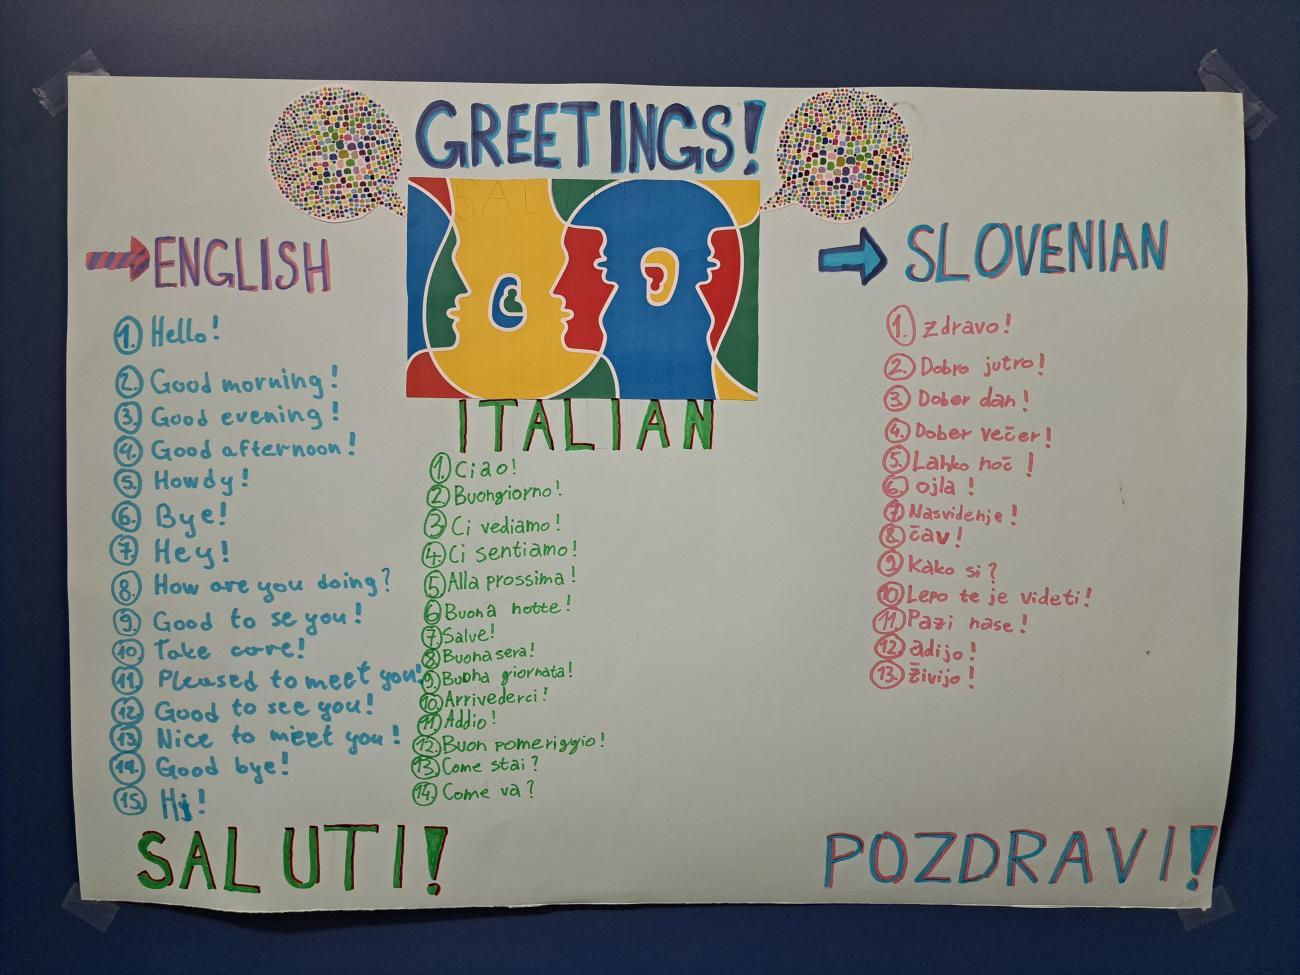 GREETINGS!
ENGLISH
1. Hello!
2. Good morning!
3. Good evening!
4. Good afternoon!
5. Howdy!
6. Bye!
7. Hey!
8. How are you doing?
9. Good to se you!
10. Take care!
11. Pleased to meet you!
12. Good to see you!
13. Nice to meet you!
14. Good bye!
15. Hi!
SALUTI!
ITALIAN
1. Ciao!
2. Buongiorno!
3. Ci vediamo!
4. Ci sentiamo!
5. Alla prossima!
6. Buona notte!
7. Salve!
8. Buona sera!
9. Buona giornata!
10. Arrivederci!
11. Addio!
12. Buon pomeriggio!
13. Come stai?
14. Come va?
SLOVENIAN
1. Zdravo!
2. Dobro jutro!
3. Dober dan!
4. Dober večer!
5. Lahko noč!
6. ojla!
7. Nasvidenje!
8. čav!
9. Kako si?
10. Lepo te je videti!
11. Pazi nase!
12. adijo!
13. živijo!
POZDRAVI!